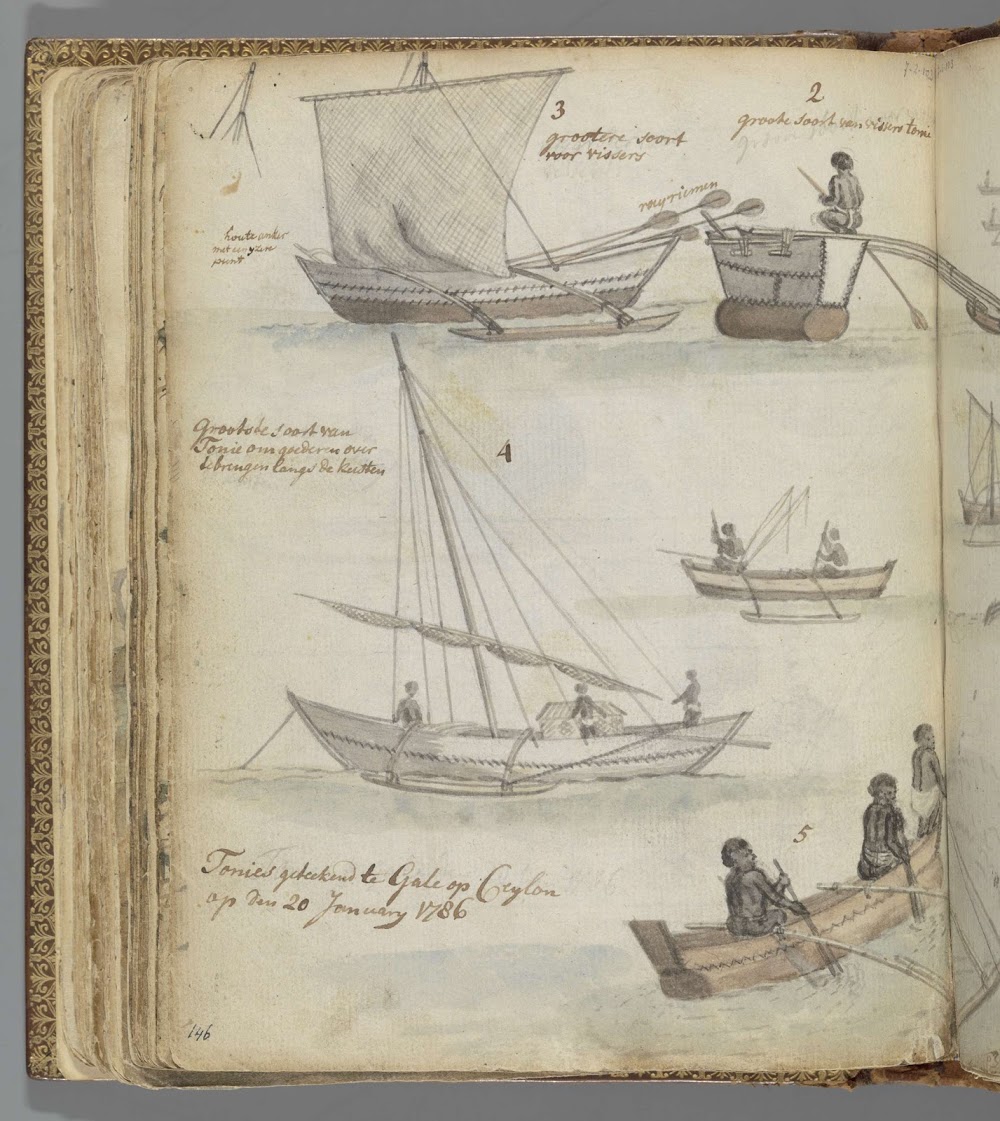 3
grootere soort
voor vissers
2
groote soort van vissers tonie
rayriemen
houte anker
met een yzere
punt
4
Grootste soort van
Tonie om goederen over
te brengen langs de kusten
5
Tonies geteekend te Gale op Ceylon
op den 20 January 1786
146